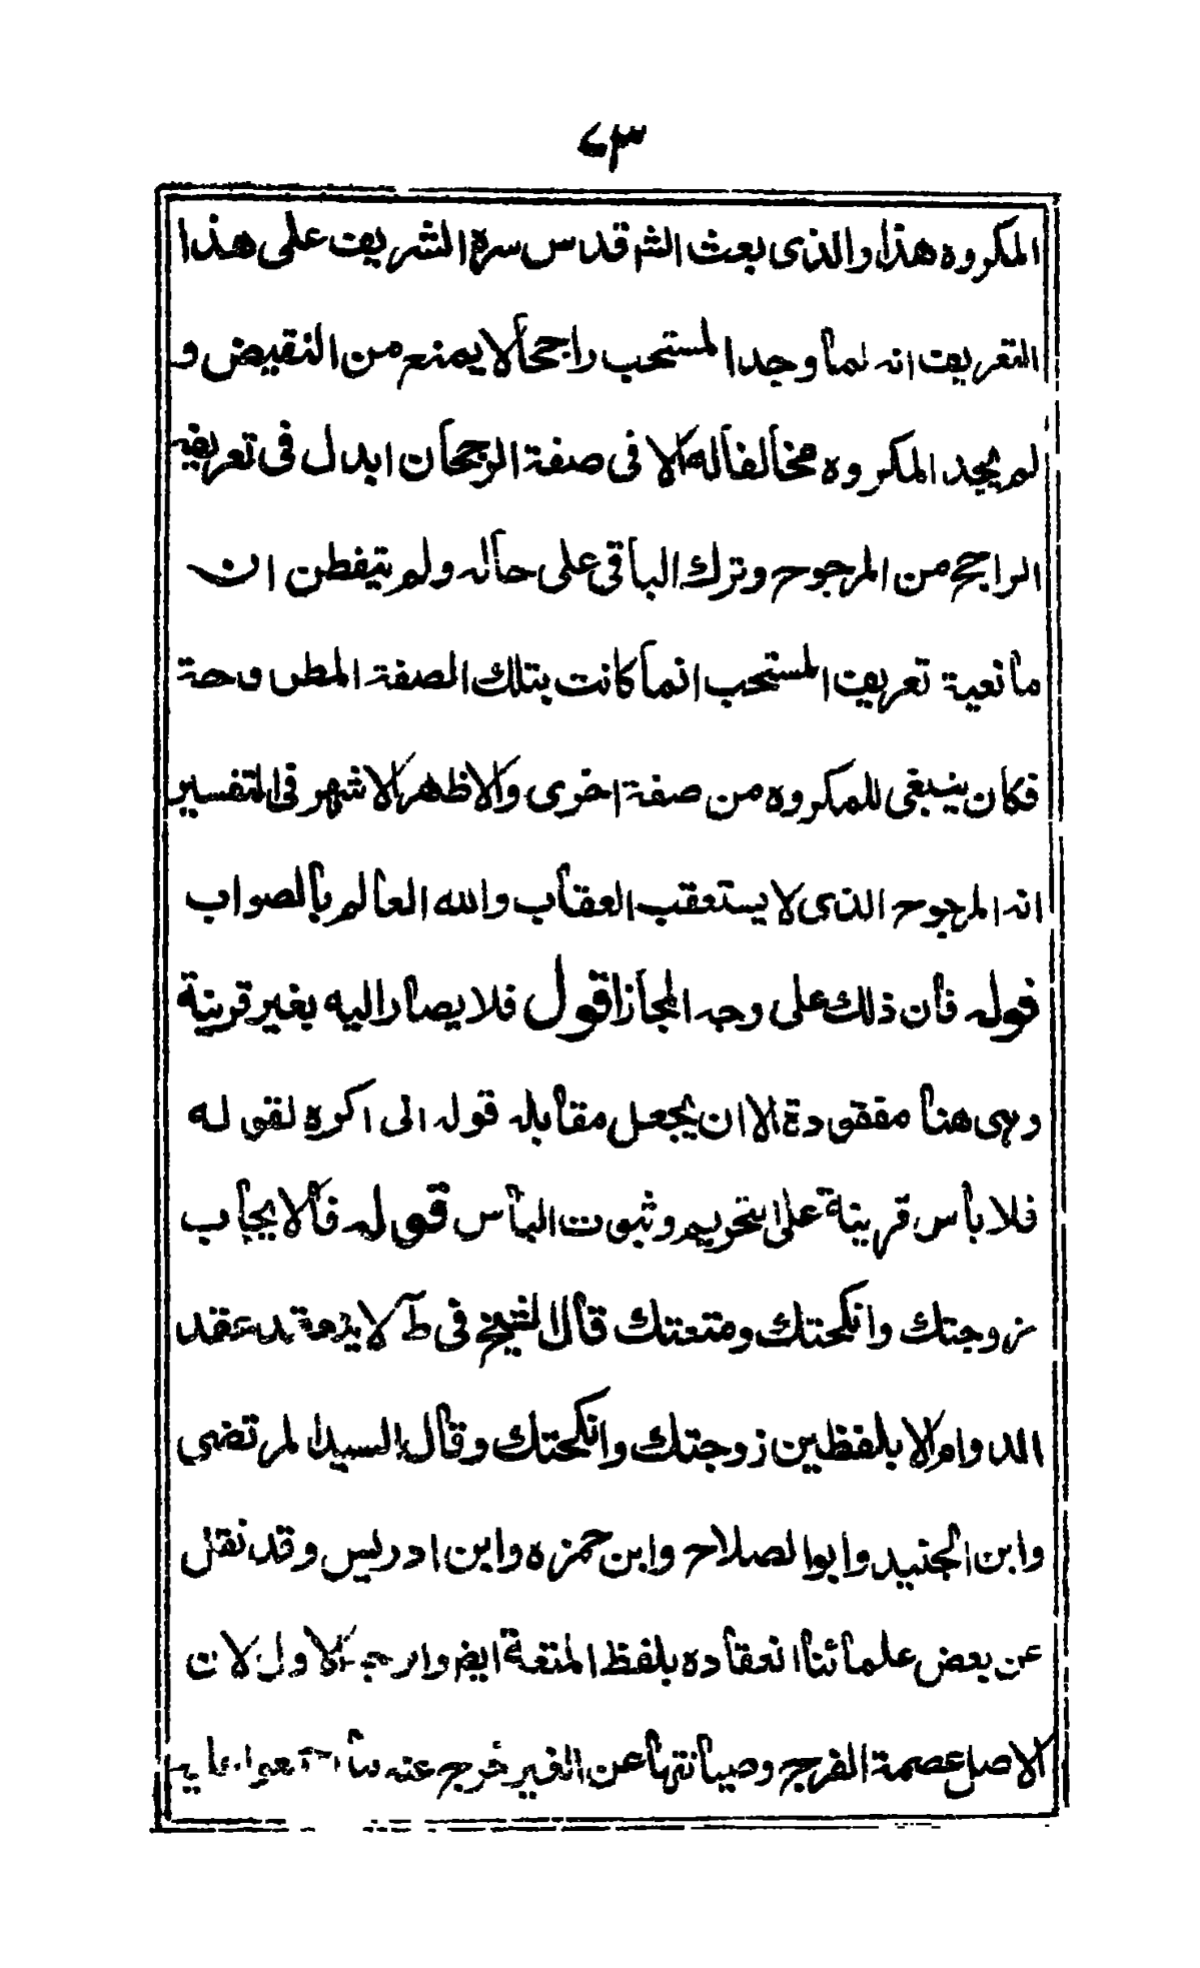 ٧٣
المكروه هذا والذى بعث الشر قدس سره الشريف على هذا
التعريف انه لما وجد المستحب راجحا لا يمنع من النقيض و
لم يجد المكروه مخالفا له الا فى صفة الرجحان ابدل فى تعريفه
الراجح من المرجوح وترك الباقى على حاله ولم يتفطن ان
مانعية تعريف المستحب انما كانت بتلك الصفة المطروحة
فكان ينبغى للمكروه من صفة اخرى والاظهر الاشهر فى التفسير
انه المرجوح الذى لا يستعقب العقاب والله العالم بالصواب
قوله فان ذلك على وجه المجاز اقول فلا يصار اليه بغير قرينة
وهى هنا مفقودة الا ان يجعل مقابله قوله انى اكره لقوله
فلا باس قرينة على التحريم وثبوت الباس قوله فالايجاب
زوجتك وانكحتك ومتعتك قال الشيخ فى ط لا ينعقد عقد
الدوام الا بلفظين زوجتك وانكحتك وقال السيد المرتضى
وابن الجنيد وابو الصلاح وابن حمزه وابن ادريس وقد نقل
عن بعض علمائنا انعقاده بلفظ المتعة ايض وارجح الاول لان
الاصل عصمة الفرج وصيانتها عن الغير خرج عنه ما